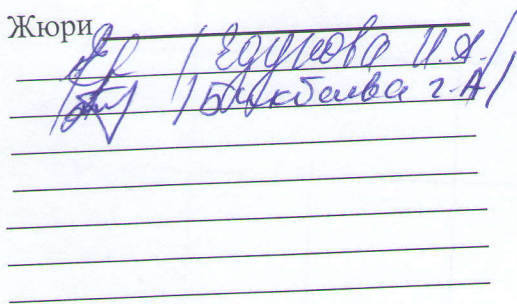 Жюри
/ Едунова И.А. /
/ Бикбаева Г.А /